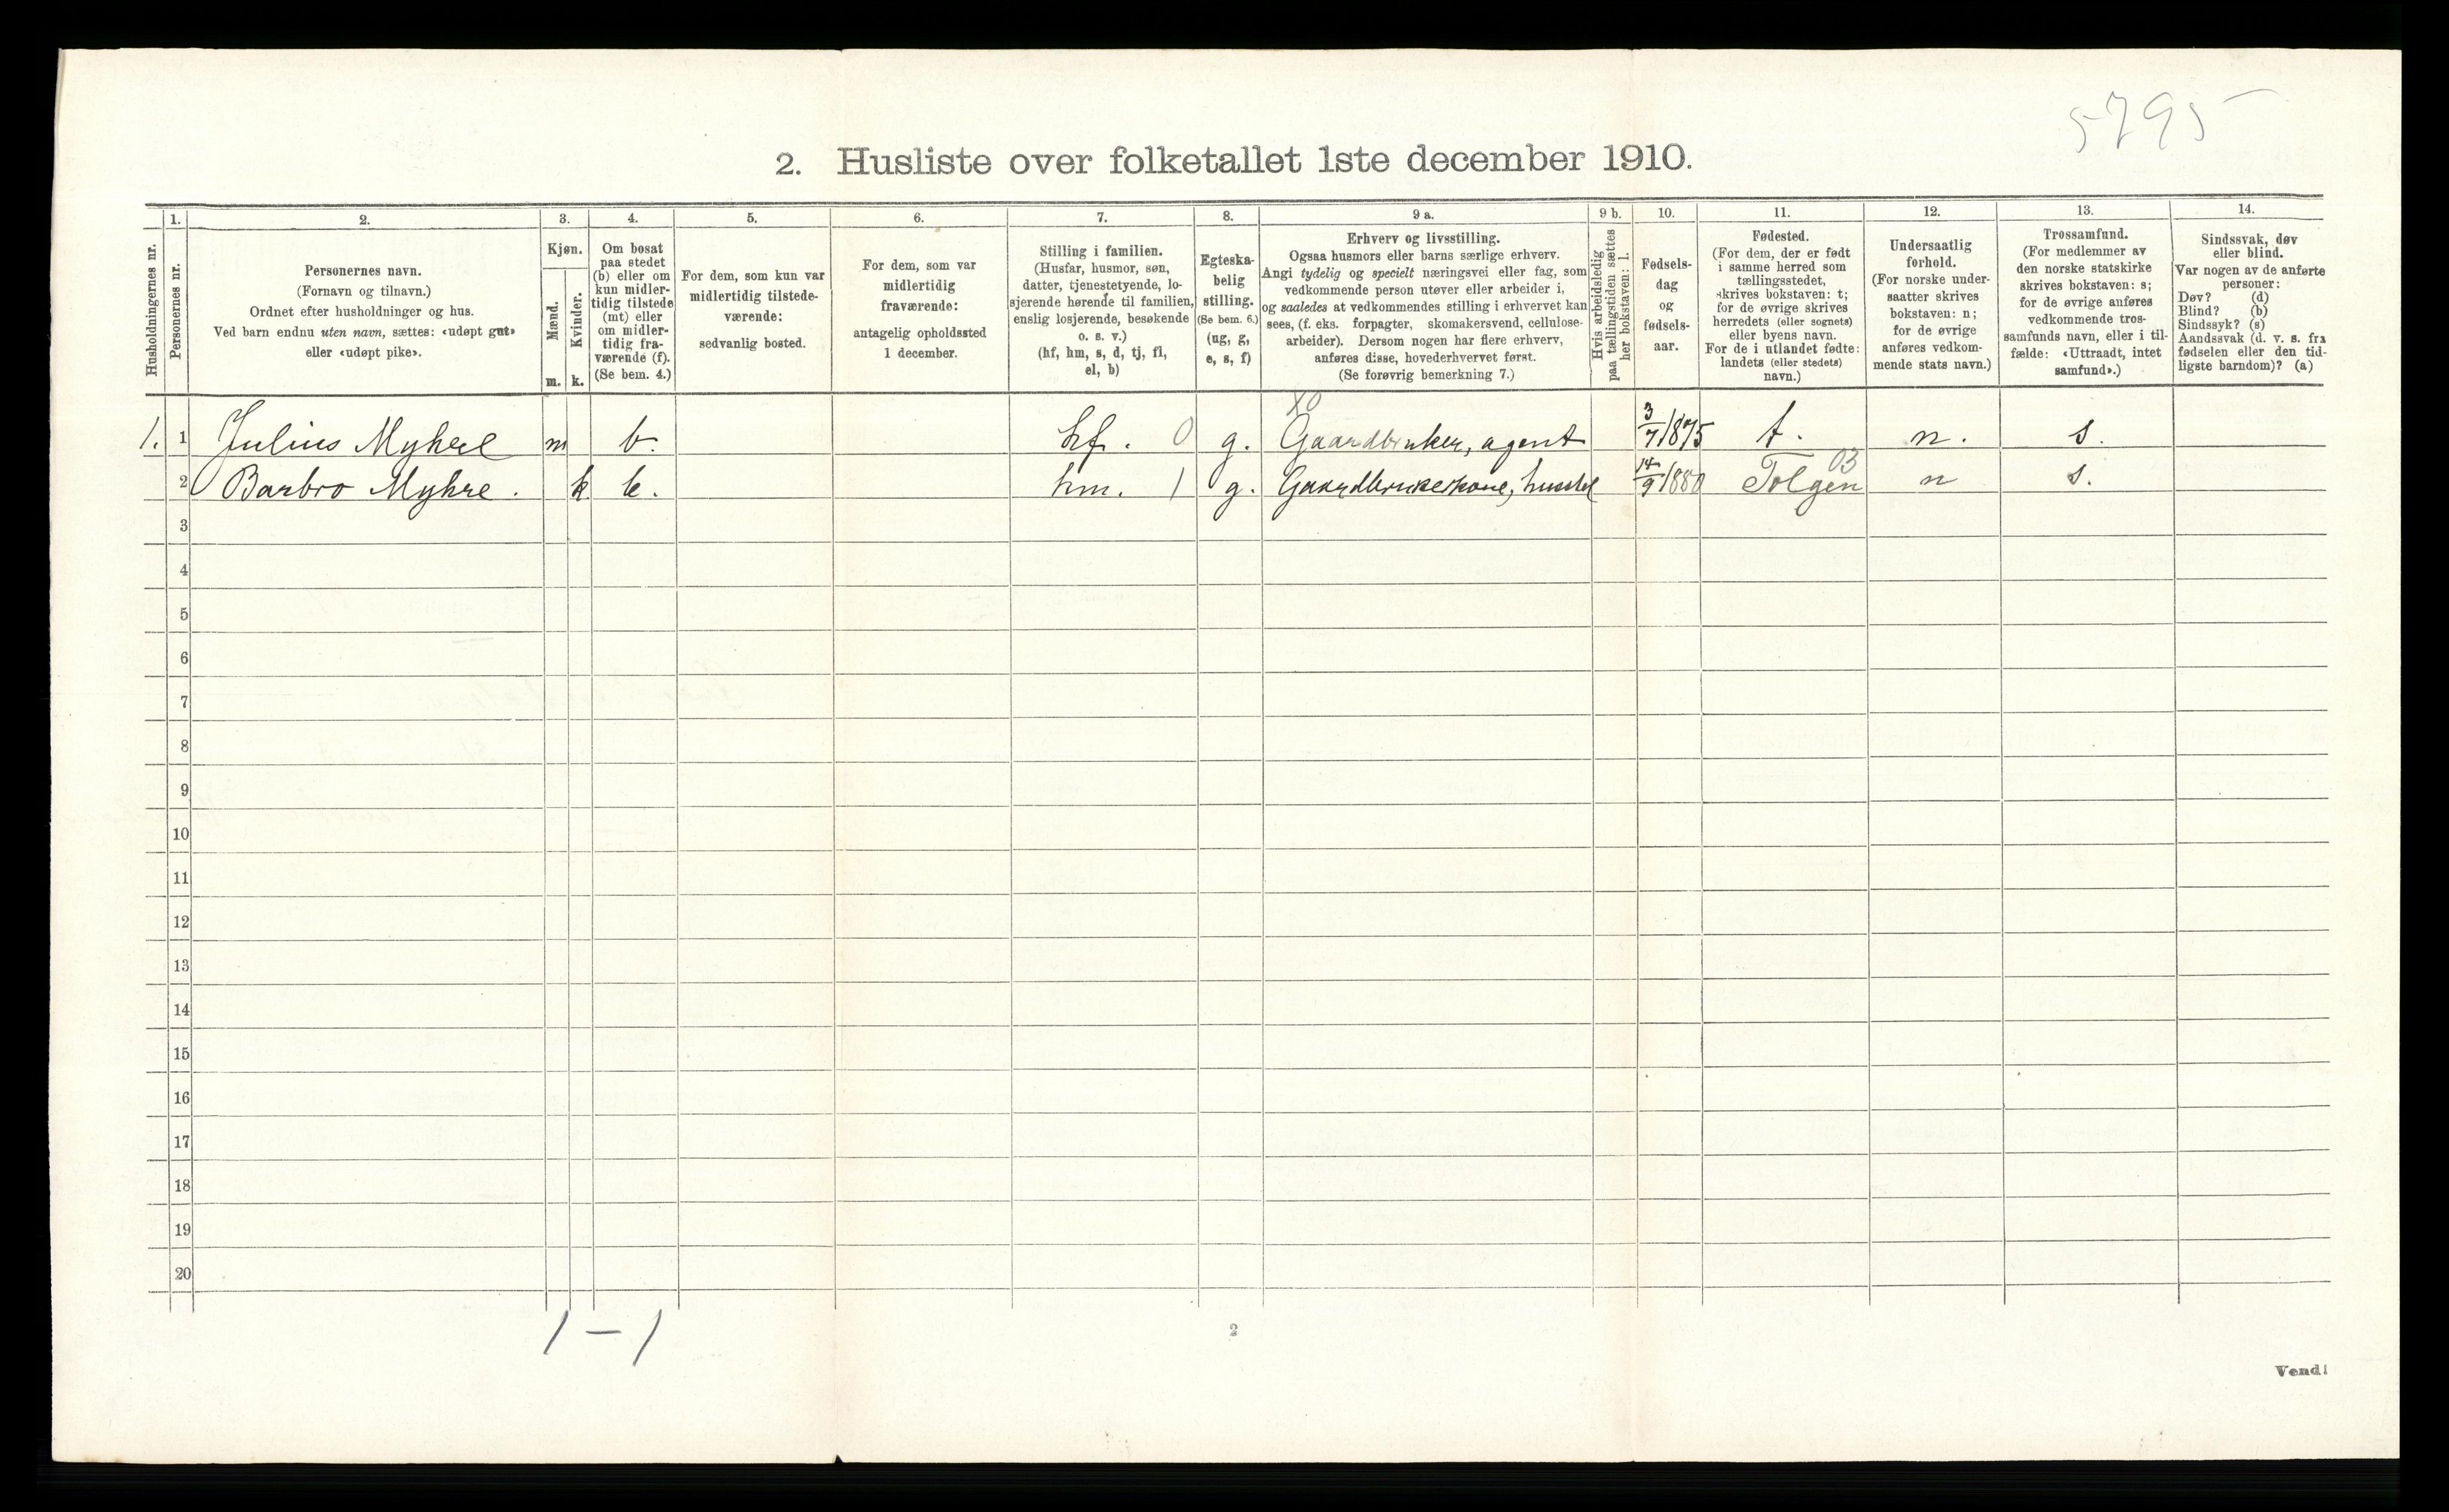 5795
2. Husliste over folketallet 1ste december 1910.
Husholdningernes nr.
1.
Personernes nr.
2.
Personernes navn.
(Fornavn og tilnavn.)
Ordnet efter husholdninger og hus.
Ved barn endnu uten navn, sættes: «udøpt gut»
eller «udøpt pike».
3.
Kjøn.
Mænd.
Kvinder.
m. k.
4.
Om bosat
paa stedet
(b) eller om
kun midler-
tidig tilstede
(mt) eller
om midler-
tidig fra-
værende (f).
(Se bem. 4.)
5.
For dem, som kun var
midlertidig tilstede-
værende:
sedvanlig bosted.
6.
For dem, som var
midlertidig
fraværende:
antagelig opholdssted
1 december.
7.
Stilling i familien.
(Husfar, husmor, søn,
datter, tjenestetyende, lo-
sjerende hørende til familien,
enslig losjerende, besøkende
o. s. v.)
(hf, hm, s, d, tj, fl,
el, b)
8.
Egteska-
belig
stilling.
(Se bem. 6.)
(ug, g,
e, s, f)
9 a.
Erhverv og livsstilling.
Ogsaa husmors eller barns særlige erhverv.
Angi tydelig og specielt næringsvei eller fag, som
vedkommende person utøver eller arbeider i,
og saaledes at vedkommendes stilling i erhvervet kan
sees, (f. eks. forpagter, skomakersvend, cellulose-
arbeider). Dersom nogen har flere erhverv,
anføres disse, hovederhvervet først.
(Se forøvrig bemerkning 7.)
9 b.
Hvis arbeidsledig
paa tællingstiden sættes
her bokstaven: l.
10.
Fødsels-
dag
og
fødsels-
aar.
11.
Fødested.
(For dem, der er født
i samme herred som
tællingsstedet,
skrives bokstaven: t;
for de øvrige skrives
herredets (eller sognets)
eller byens navn.
For de i utlandet fødte:
landets (eller stedets)
navn.)
12.
Undersaatlig
forhold.
(For norske under-
saatter skrives
bokstaven: n;
for de øvrige
anføres vedkom-
mende stats navn.)
13.
Trossamfund.
(For medlemmer av
den norske statskirke
skrives bokstaven: s;
for de øvrige anføres
vedkommende tros-
samfunds navn, eller i til-
fælde: «Uttraadt, intet
samfund».)
14.
Sindssvak, døv
eller blind.
Var nogen av de anførte
personer:
Døv? (d)
Blind? (b)
Sindssyk? (s)
Aandssvak (d. v. s. fra
fødselen eller den tid-
ligste barndom)? (a)
X0
1. 1 Julius Myhre m b. hf. 0 g. Gaardbruker, agent 3/7 1875 t. n. s.
03
2 Barbro Myhre. k b. hm. 1 g. Gaardbrukerkone, husstel 14/9 1880 Tolgen n s.
3
4
5
6
7
8
9
10
11
12
13
14
15
16
17
18
19
20
1 – 1
2
Vend!